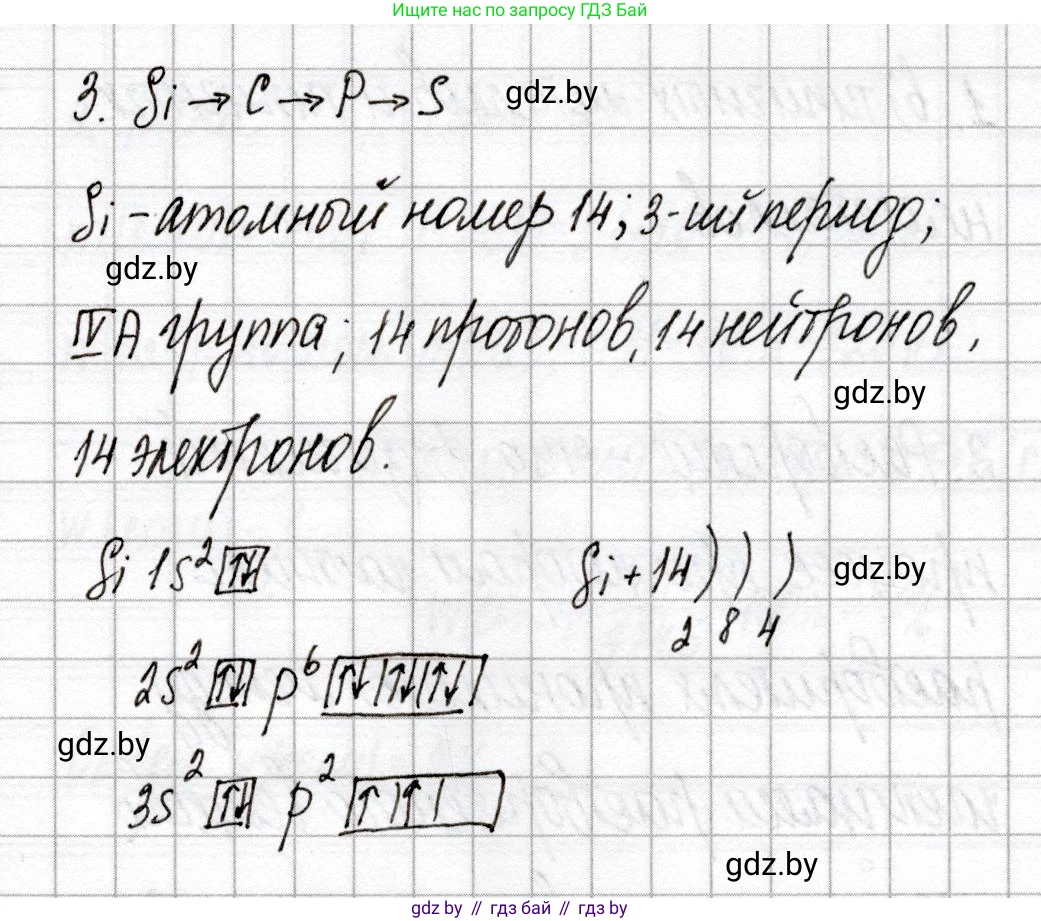 Ищите нас по запросу ГДЗ Бай
3. Si → C → P → S gdz.by
Si - атомный номер 14; 3-ий период;
gdz.by
IV A группа; 14 протонов, 14 нейтронов,
gdz.by
14 электронов.
Si 1s² ↑↓ Si +14 ) ) ) gdz.by
2 8 4
2s² ↑↓ p⁶ ↑↓ ↑↓ ↑↓
gdz.by
3s² ↑↓ p² ↑ ↑
gdz.by
gdz.by // гдз бай // gdz.by